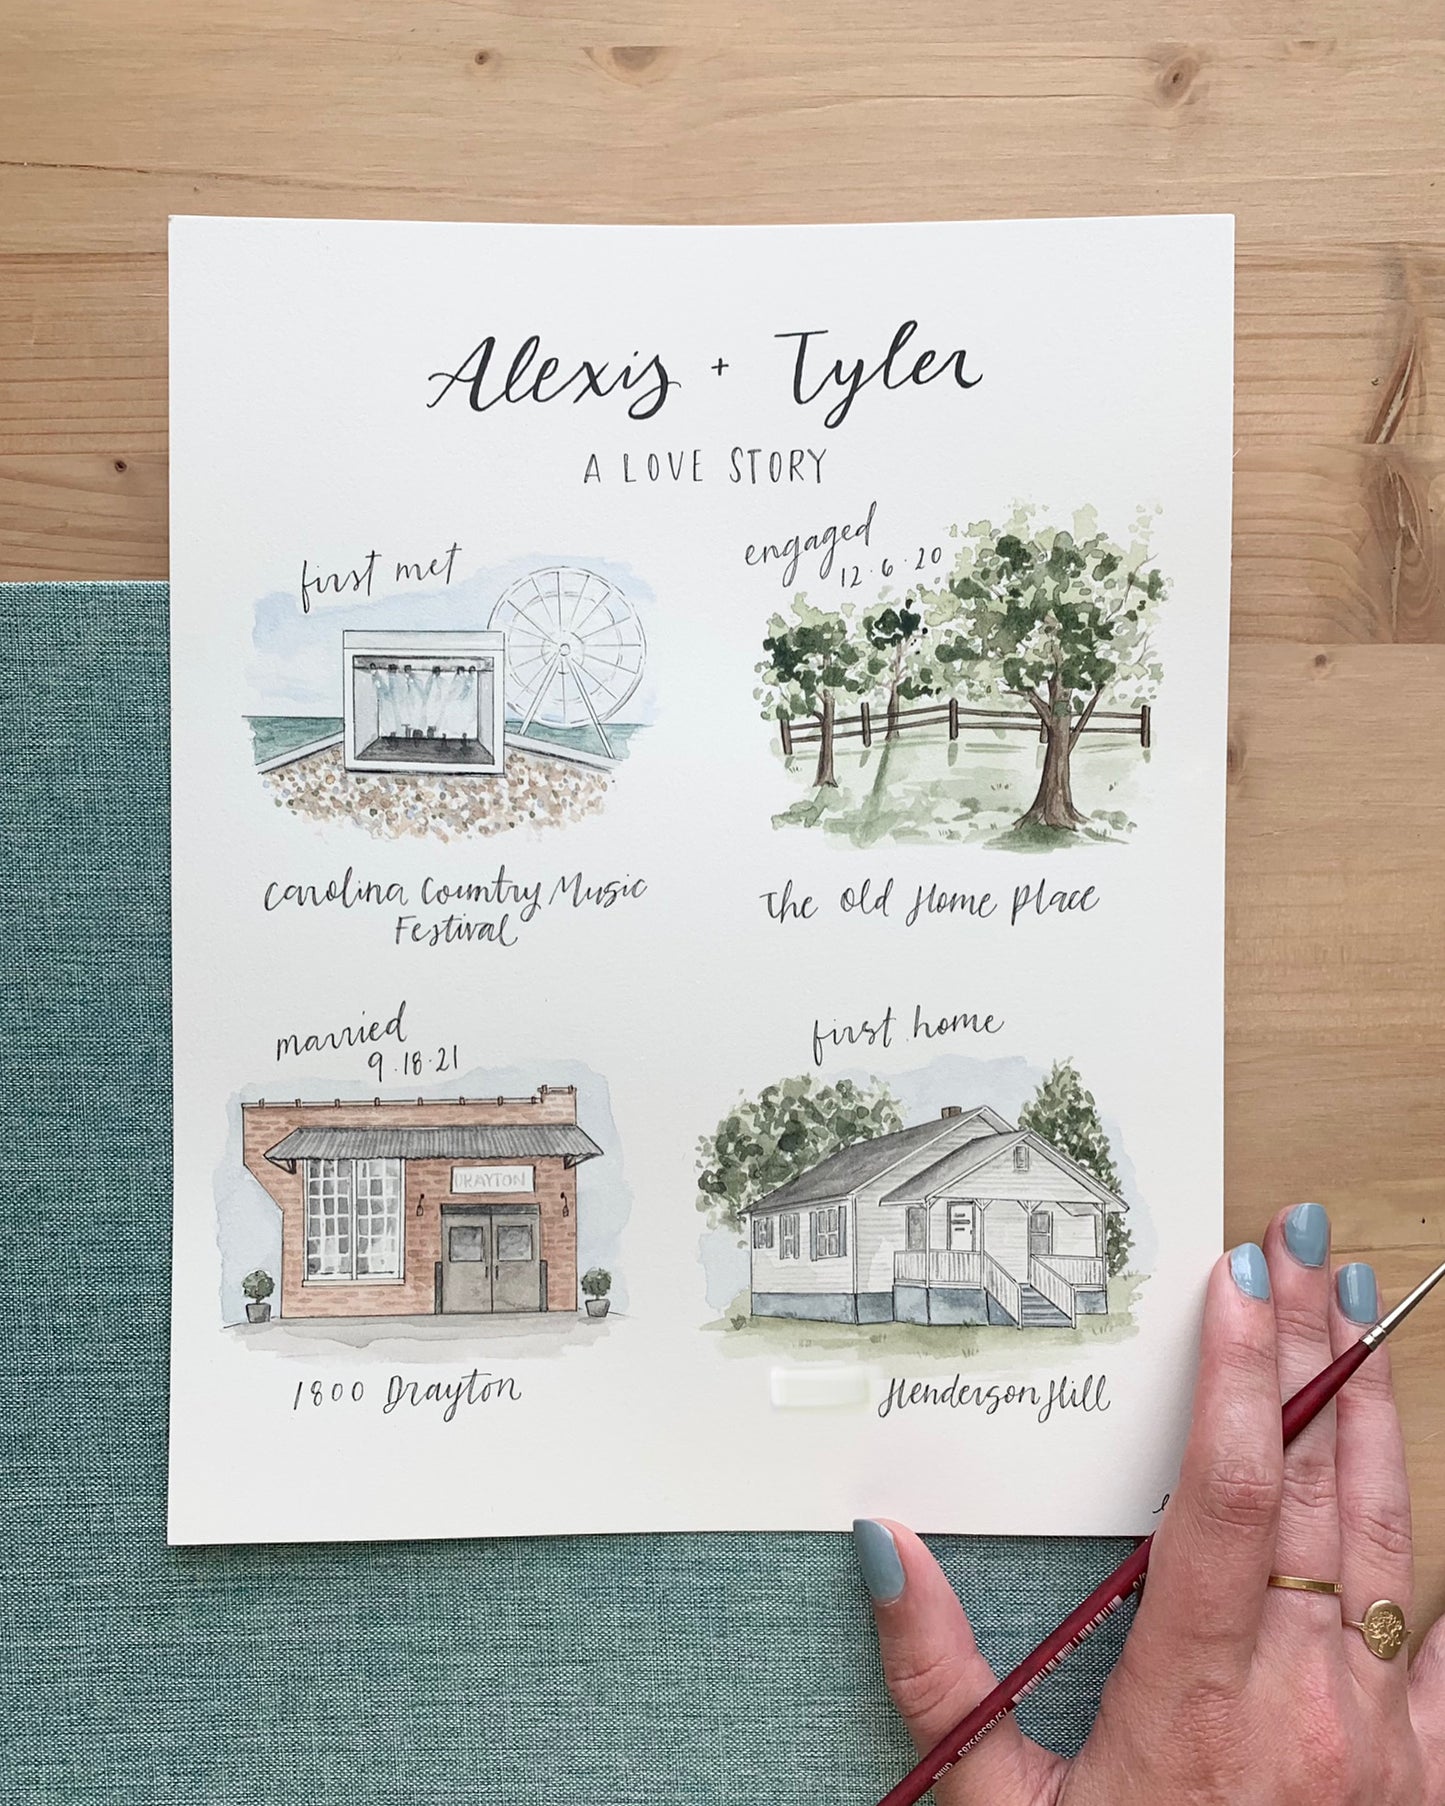 Alexis + Tyler
A LOVE STORY
first met
engaged
12.6.20
Carolina Country Music
Festival
The Old Home Place
married
9.18.21
first home
DRAYTON
1800 Drayton
Henderson Hill